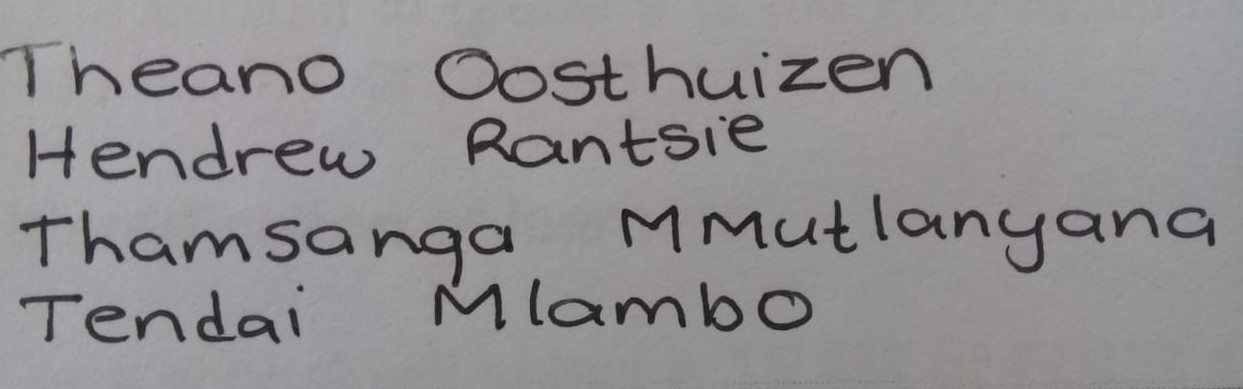 Theano Oosthuizen
Hendrew Rantsie
Thamsanga MMutlanyana
Tendai Mlambo